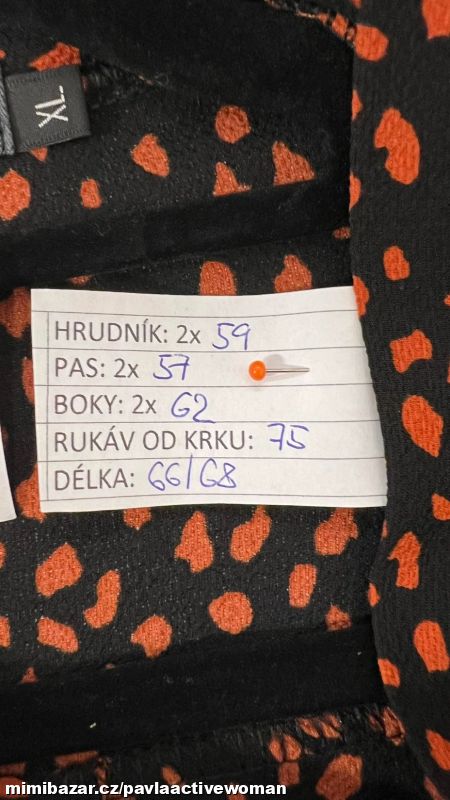 XL
HRUDNÍK: 2x 59
PAS: 2x 57
BOKY: 2x 62
RUKÁV OD KRKU: 75
DÉLKA: 66/68
mimibazar.cz/pavlaactivewoman